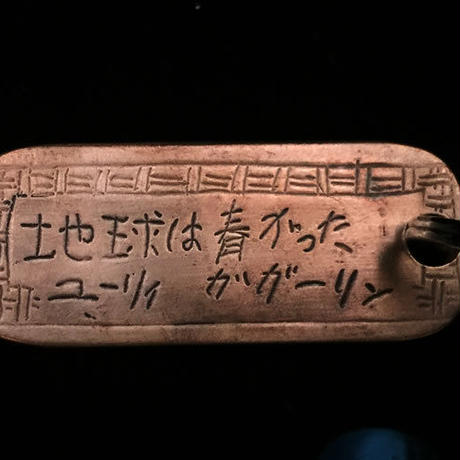 地球は青かった
ユーリィ ガガーリン